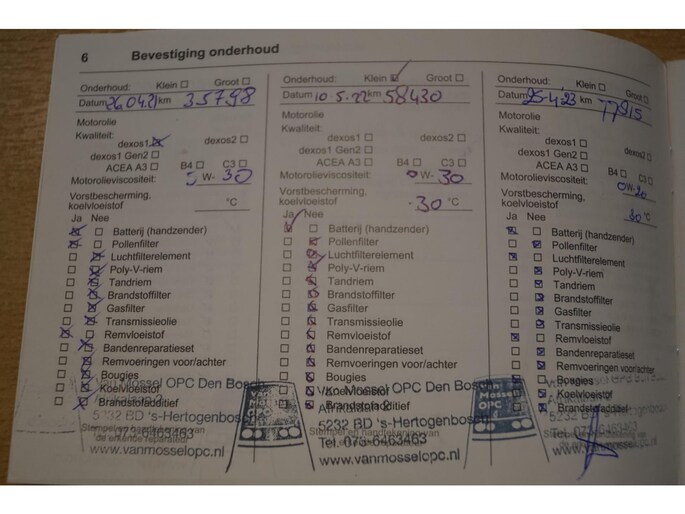 6 Bevestiging onderhoud
Onderhoud: Klein ☐ Groot ☐
Datum 26.04.21 km 35798
Motorolie
Kwaliteit:
dexos1 ☒ dexos2 ☐
dexos1 Gen2 ☐
ACEA A3 ☐ B4 ☐ C3 ☐
Motorolieviscositeit: 5 W- 30
Vorstbescherming,
koelvloeistof °C
Ja Nee
☒ ☐ Batterij (handzender)
☒ ☐ Pollenfilter
☐ ☒ Luchtfilterelement
☐ ☒ Poly-V-riem
☐ ☒ Tandriem
☐ ☒ Brandstoffilter
☐ ☒ Gasfilter
☐ ☒ Transmissieolie
☒ ☐ Remvloeistof
☐ ☒ Bandenreparatieset
☐ ☒ Remvoeringen voor/achter
☐ ☒ Bougies
☐ ☒ Koelvloeistof
☐ ☒ Brandstofadditief
Van Mossel OPC Den Bosch
5232 BD 's-Hertogenbosch
Stempel en handtekening van
de erkende reparateur
073-6463463
www.vanmosselopc.nl
Onderhoud: Klein ☑ Groot ☐
Datum 10.5.22 km 58430
Motorolie
Kwaliteit:
dexos1 ☐ dexos2 ☐
dexos1 Gen2 ☐
ACEA A3 ☐ B4 ☐ C3 ☐
Motorolieviscositeit: 0 W- 30
Vorstbescherming,
koelvloeistof -30 °C
Ja Nee
☑ ☐ Batterij (handzender)
☐ ☒ Pollenfilter
☐ ☒ Luchtfilterelement
☐ ☒ Poly-V-riem
☐ ☒ Tandriem
☐ ☒ Brandstoffilter
☐ ☒ Gasfilter
☐ ☒ Transmissieolie
☐ ☒ Remvloeistof
☐ ☒ Bandenreparatieset
☐ ☒ Remvoeringen voor/achter
☐ ☒ Bougies
☐ ☒ Koelvloeistof
☐ ☒ Brandstofadditief
Van Mossel OPC Den Bosch
5232 BD 's-Hertogenbosch
Tel. 073-6463463
www.vanmosselopc.nl
Onderhoud: Klein ☐ Groot ☐
Datum 25-4-23 km 77815
Motorolie
Kwaliteit:
dexos1 ☐ dexos2 ☐
dexos1 Gen2 ☐
ACEA A3 ☐ B4 ☐ C3 ☐
Motorolieviscositeit: 0W-20
Vorstbescherming,
koelvloeistof 30 °C
Ja Nee
☒ ☐ Batterij (handzender)
☐ ☒ Pollenfilter
☒ ☐ Luchtfilterelement
☐ ☒ Poly-V-riem
☐ ☒ Tandriem
☐ ☒ Brandstoffilter
☐ ☒ Gasfilter
☐ ☒ Transmissieolie
☒ ☐ Remvloeistof
☐ ☒ Bandenreparatieset
☐ ☒ Remvoeringen voor/achter
Bougies
Koelvloeistof
Brandstofadditief
Van Mossel OPC
5232 BD 's-Hertogenbosch
www.vanmosselopc.nl